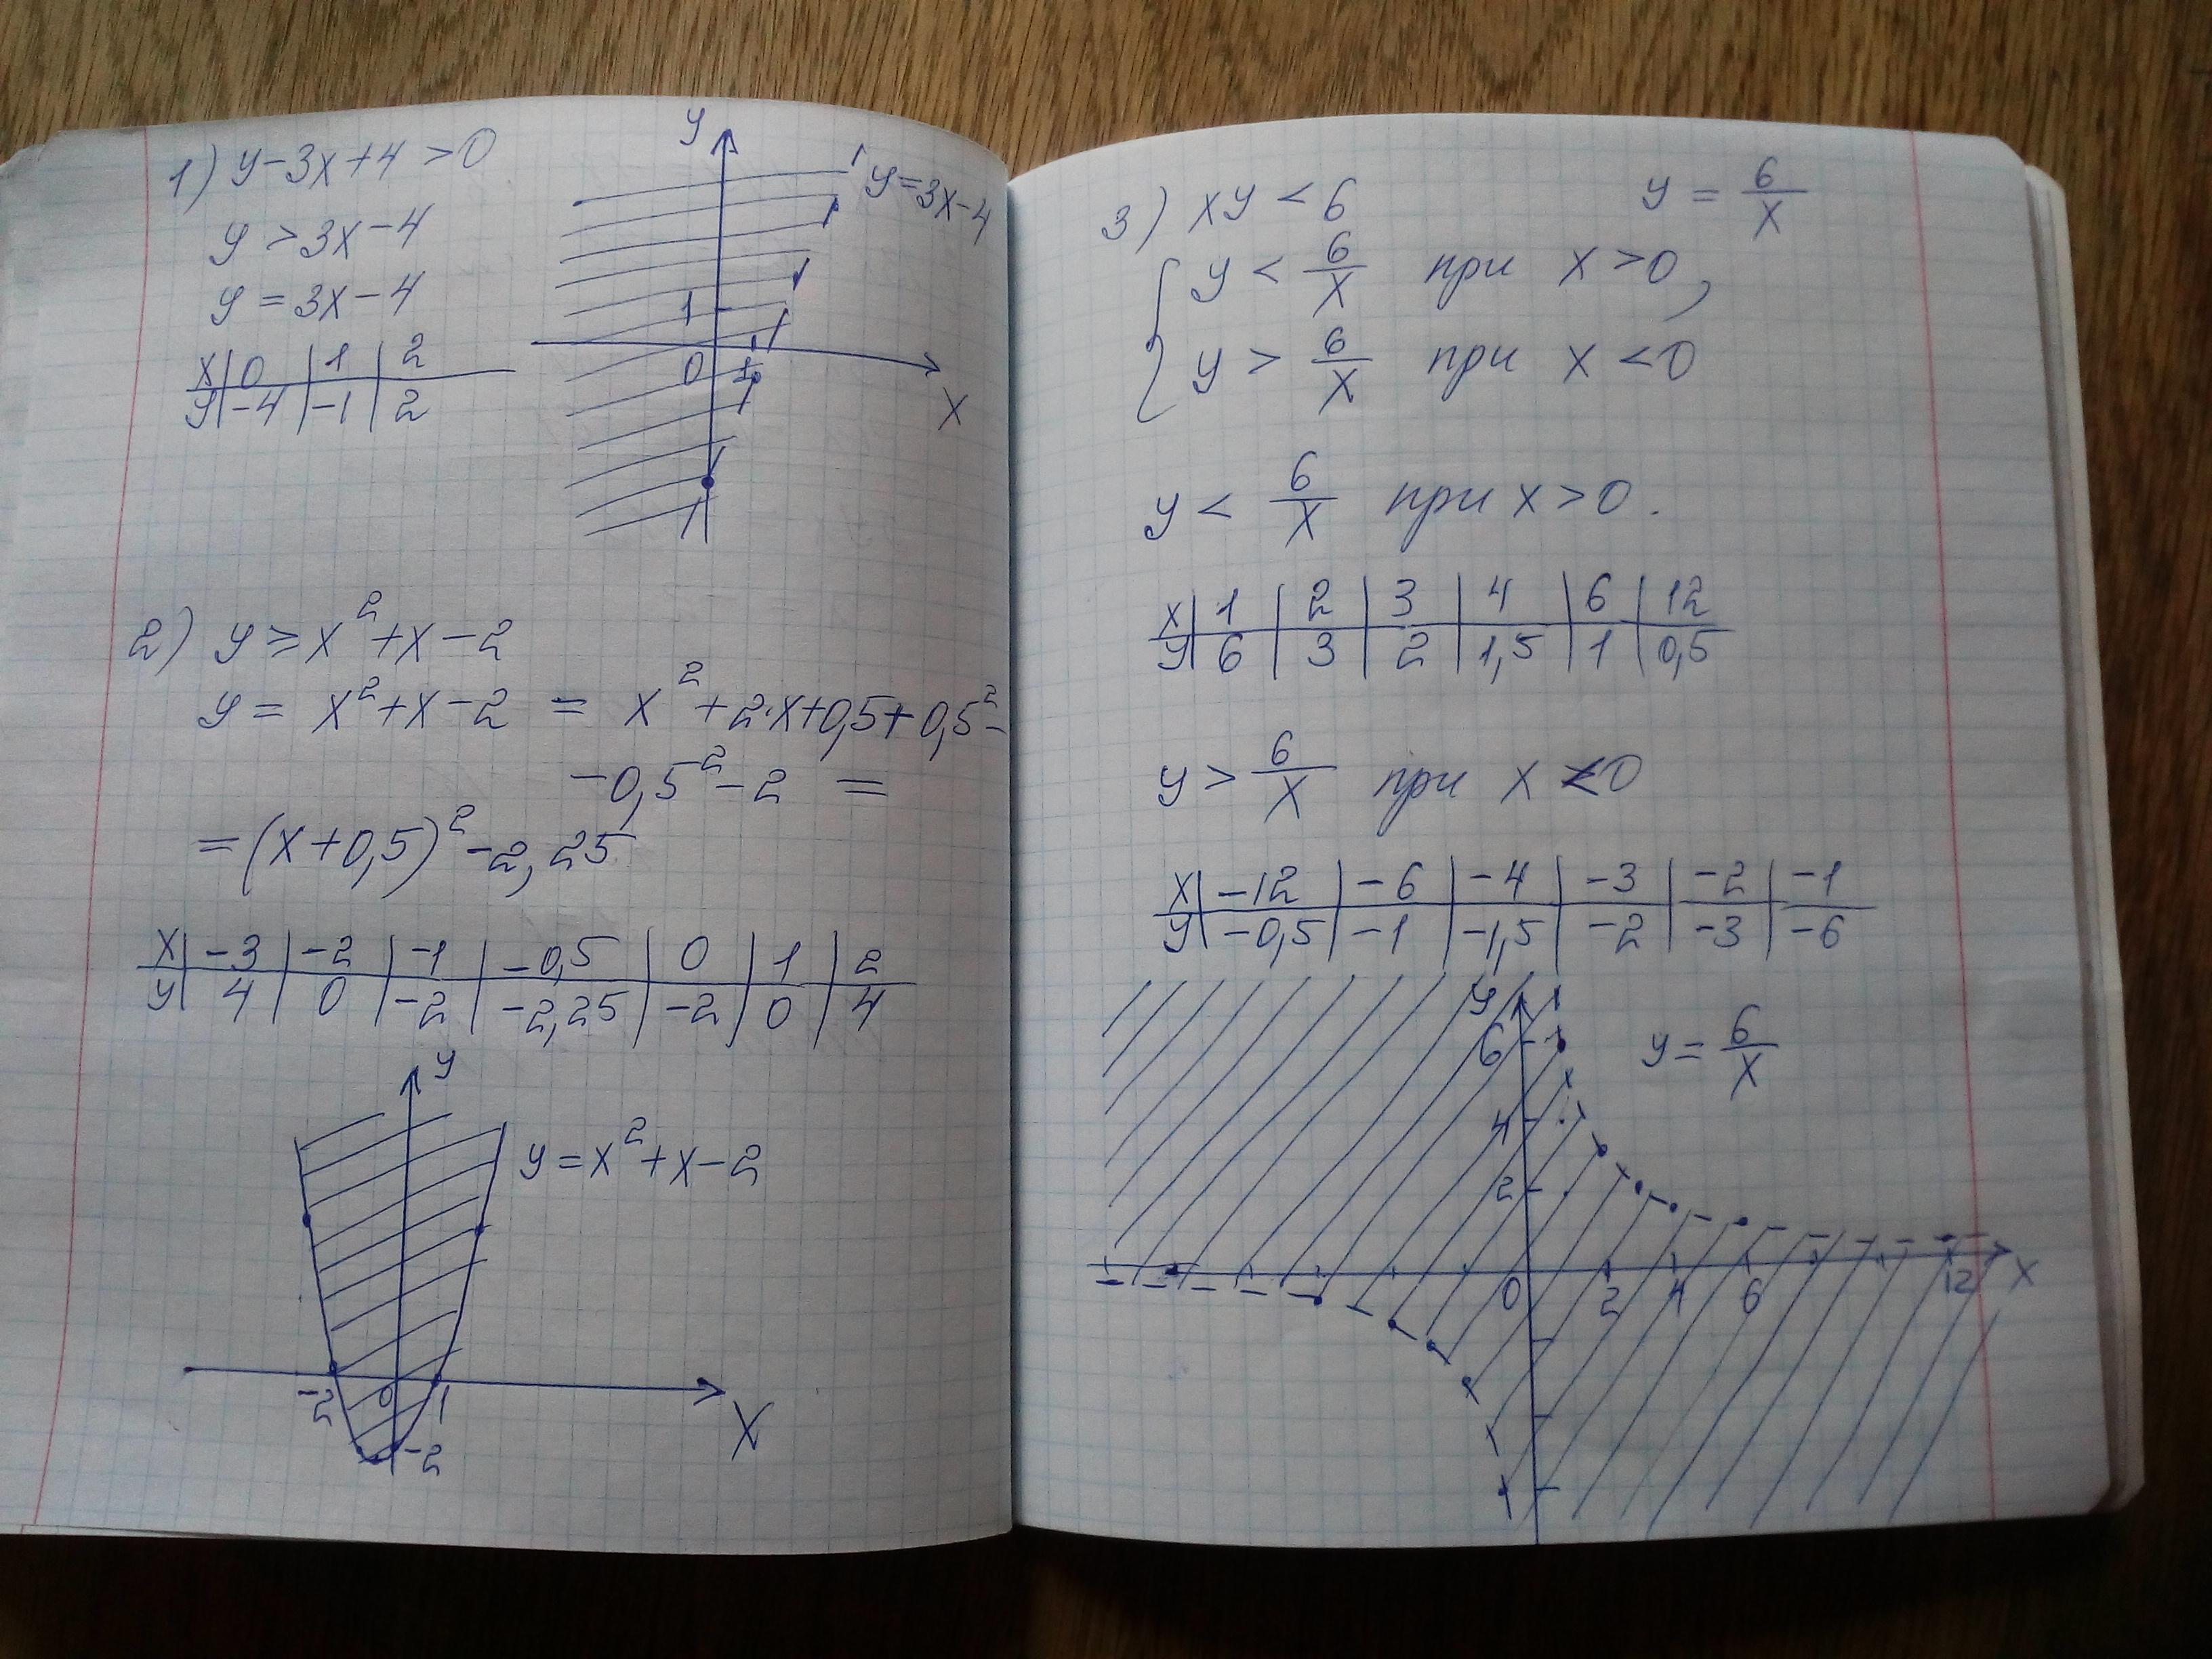 1) y-3x+4>0
y>3x-4
y=3x-4
x 0 1 2
y -4 -1 2
y
y=3x-4
1
0 1
x
2) y≥x²+x-2
y=x²+x-2=x²+2·x+0,5+0,5²-
-0,5²-2=
=(x+0,5)²-2,25
x -3 -2 -1 -0,5 0 1 2
y 4 0 -2 -2,25 -2 0 4
y
y=x²+x-2
-2 0 1
-2
x
3) xy<6 y=6/x
{ y<6/x при x>0,
y>6/x при x<0
y<6/x при x>0.
x 1 2 3 4 6 12
y 6 3 2 1,5 1 0,5
y>6/x при x<0
x -12 -6 -4 -3 -2 -1
y -0,5 -1 -1,5 -2 -3 -6
y
6
y=6/x
4
2
0 2 4 6 12 x